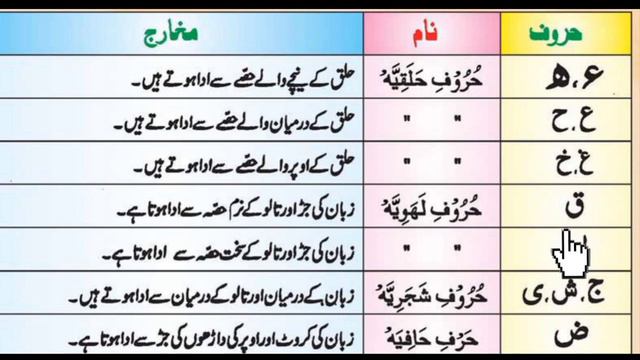 حروف نام مخارج
ء، ھ حُرُوْفِ حَلَقِیَّہْ حلق کے نیچے والے حصّے سے ادا ہوتے ہیں۔
ع، ح " " حلق کے درمیان والے حصّے سے ادا ہوتے ہیں۔
غ، خ " " حلق کے اوپر والے حصّے سے ادا ہوتے ہیں۔
ق حُرُوْفِ لَهَوِیَّہْ زبان کی جڑ اور تالو کے نرم حصّہ سے ادا ہوتا ہے۔
" " زبان کی جڑ اور تالو کے سخت حصّہ سے ادا ہوتا ہے۔
ج، ش، ی حُرُوْفِ شَجَرِیَّہْ زبان کے درمیان اور تالو کے درمیان سے ادا ہوتے ہیں۔
ض حَرْفِ حَافِیَہْ زبان کی کروٹ اور اوپر کی داڑھوں کی جڑ سے ادا ہوتا ہے۔